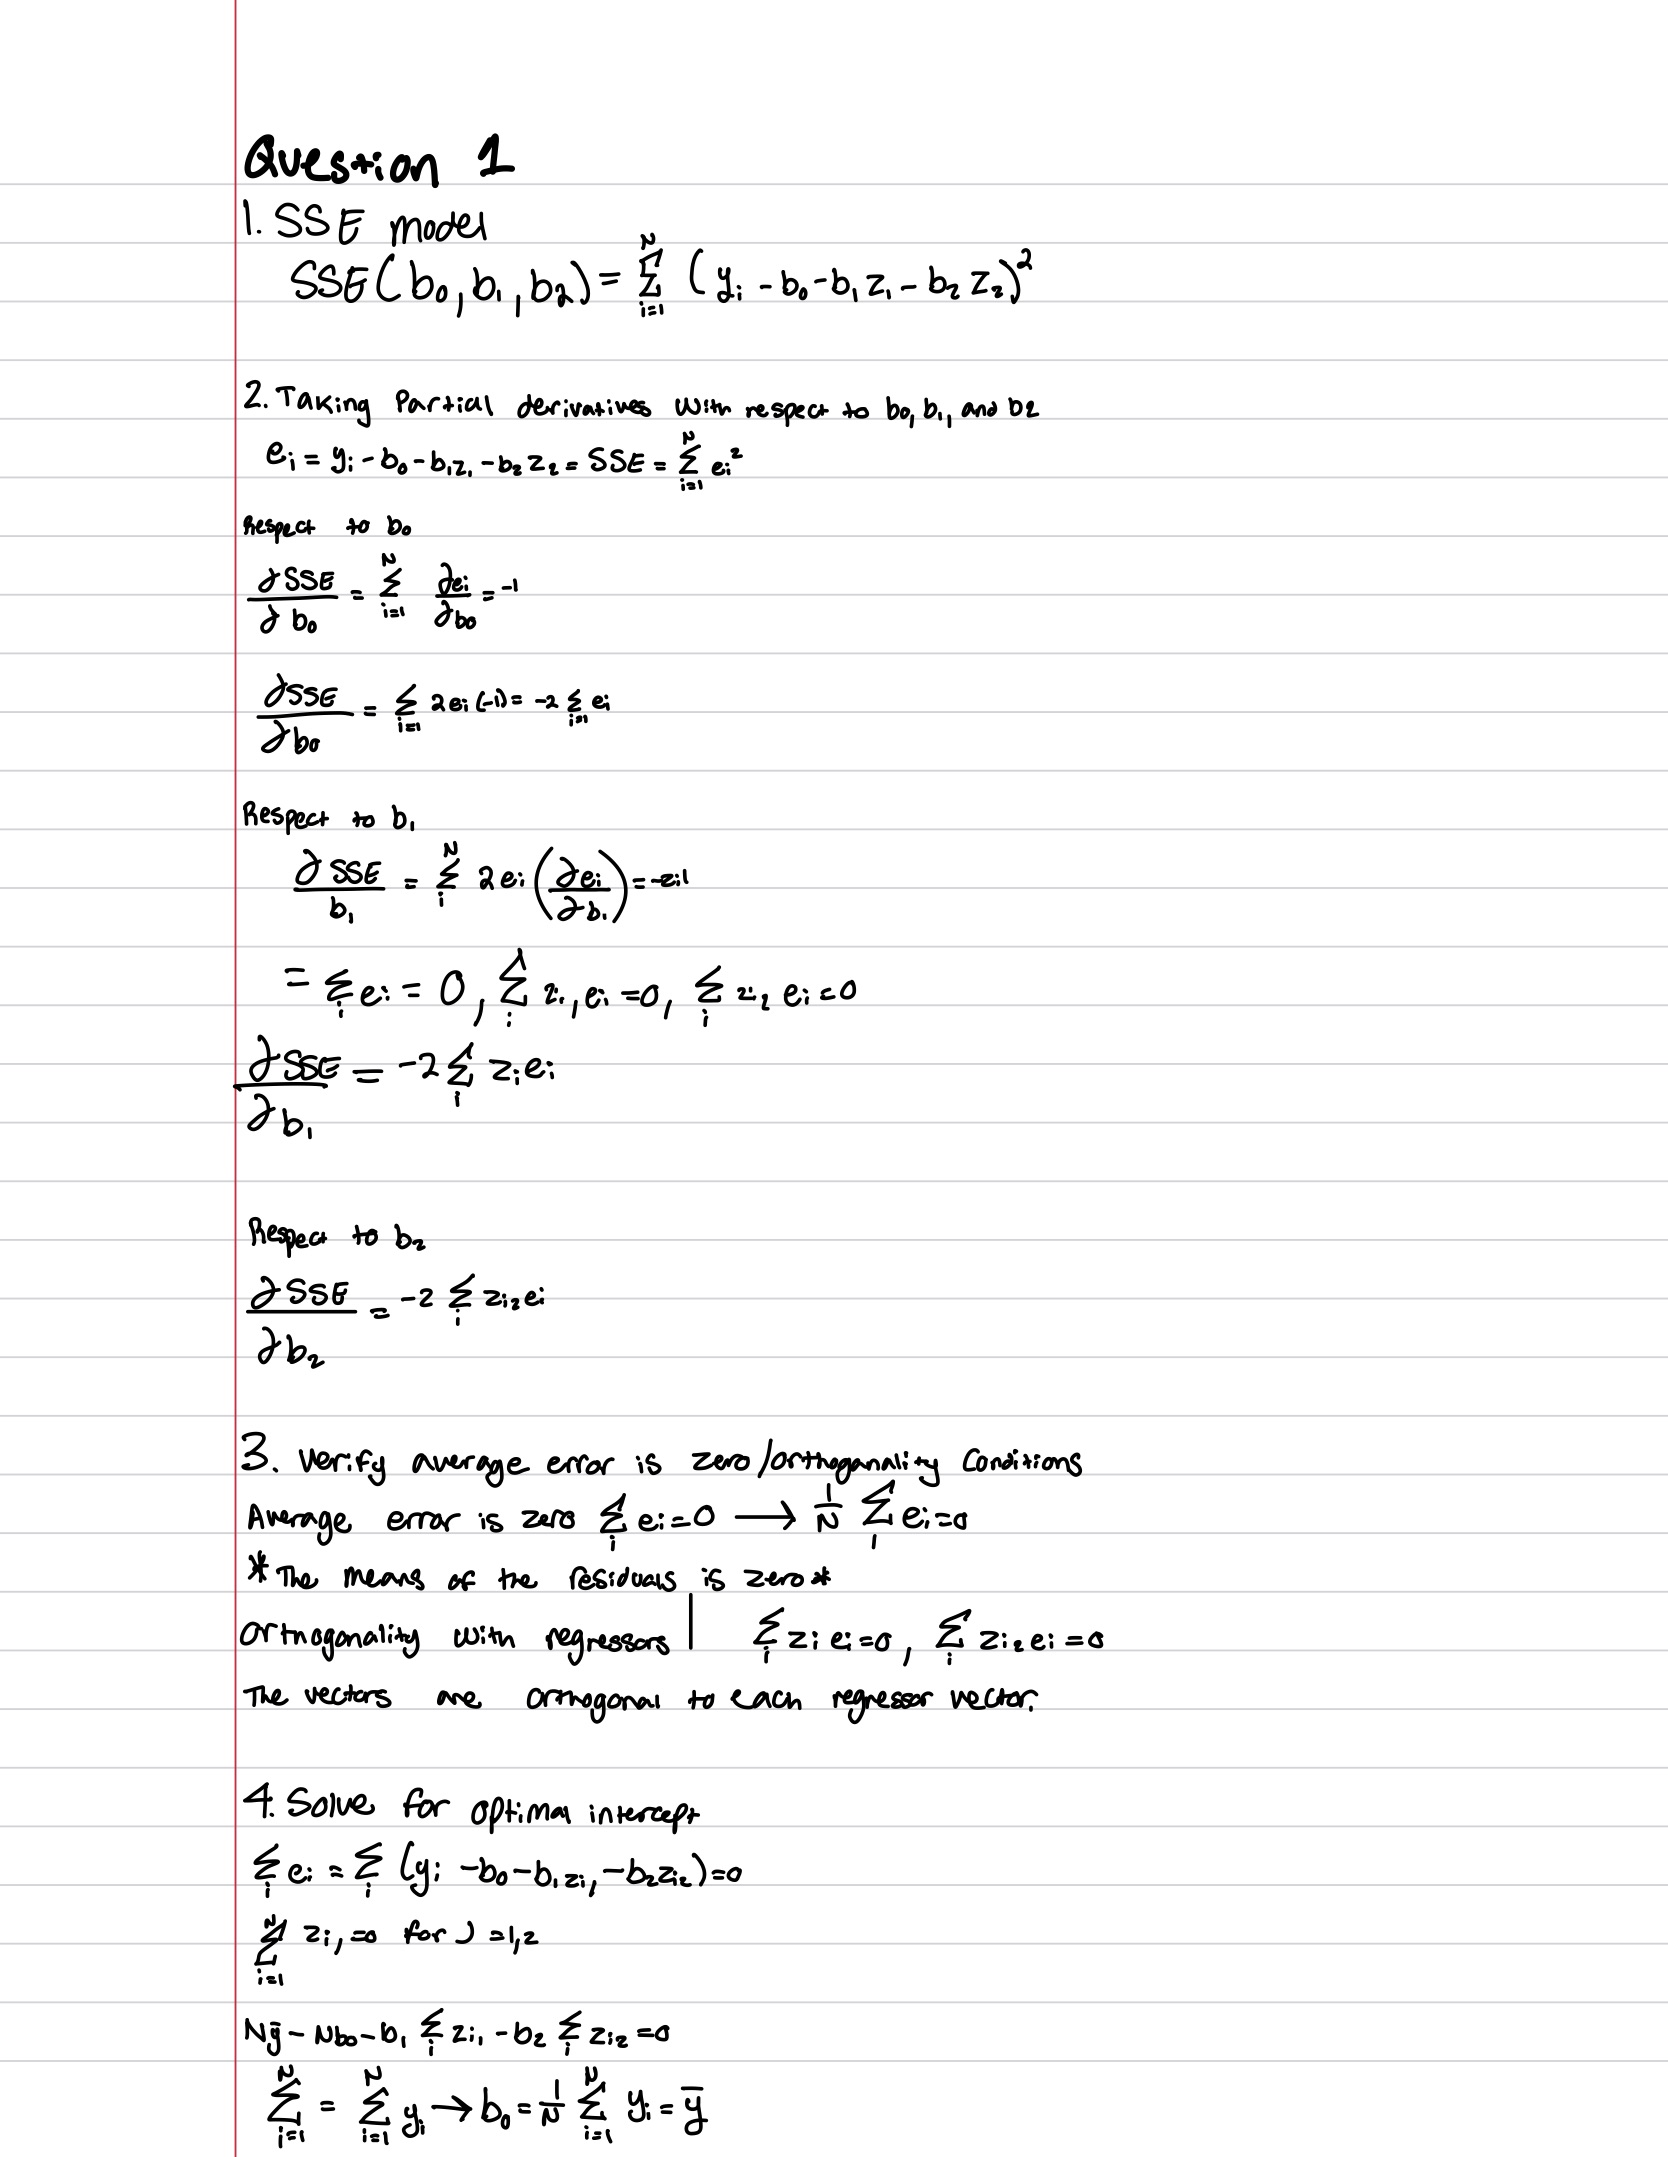 Question 1
1. SSE model
SSE(b₀, b₁, b₂) = Σ_{i=1}^{N} (yᵢ - b₀ - b₁ z₁ - b₂ z₂)²
2. Taking Partial derivatives with respect to b₀, b₁, and b2
eᵢ = yᵢ - b₀ - b₁z₁ - b₂ z₂ = SSE = Σ_{i=1}^{N} eᵢ²
Respect to b₀
∂SSE/∂b₀ = Σ_{i=1}^{N} ∂eᵢ/∂b₀ = -1
∂SSE/∂b₀ = Σ_{i=1} 2eᵢ(-1) = -2 Σ_{i=1} eᵢ
Respect to b₁
∂SSE/b₁ = Σ_{i}^{N} 2eᵢ (∂eᵢ/∂b₁) = -zi1
= Σ_{i} eᵢ = 0, Σ_{i} zᵢ₁ eᵢ = 0, Σ_{i} zᵢ₂ eᵢ = 0
∂SSE/∂b₁ = -2 Σ_{i} zᵢeᵢ
Respect to b₂
∂SSE/∂b₂ = -2 Σ_{i} zᵢ₂eᵢ
3. Verify average error is zero/orthoganality Conditions
Average error is zero Σ_{i} eᵢ = 0 → 1/N Σ_{i} eᵢ = 0
*The means of the residuals is zero*
Orthogonality with regressors | Σ_{i} zᵢ eᵢ = 0, Σ_{i} zᵢ₂ eᵢ = 0
The vectors are orthogonal to each regressor vector.
4. Solve for optimal intercept
Σ_{i} eᵢ = Σ_{i} (yᵢ - b₀ - b₁zᵢ₁ - b₂zᵢ₂) = 0
Σ_{i=1}^{N} zᵢ, = 0 for J = 1,2
Nȳ - Nb₀ - b₁ Σ_{i} zᵢ₁ - b₂ Σ_{i} zᵢ₂ = 0
Σ_{i=1}^{N} = Σ_{i=1}^{N} yᵢ → b₀ = 1/N Σ_{i=1}^{N} yᵢ = ȳ